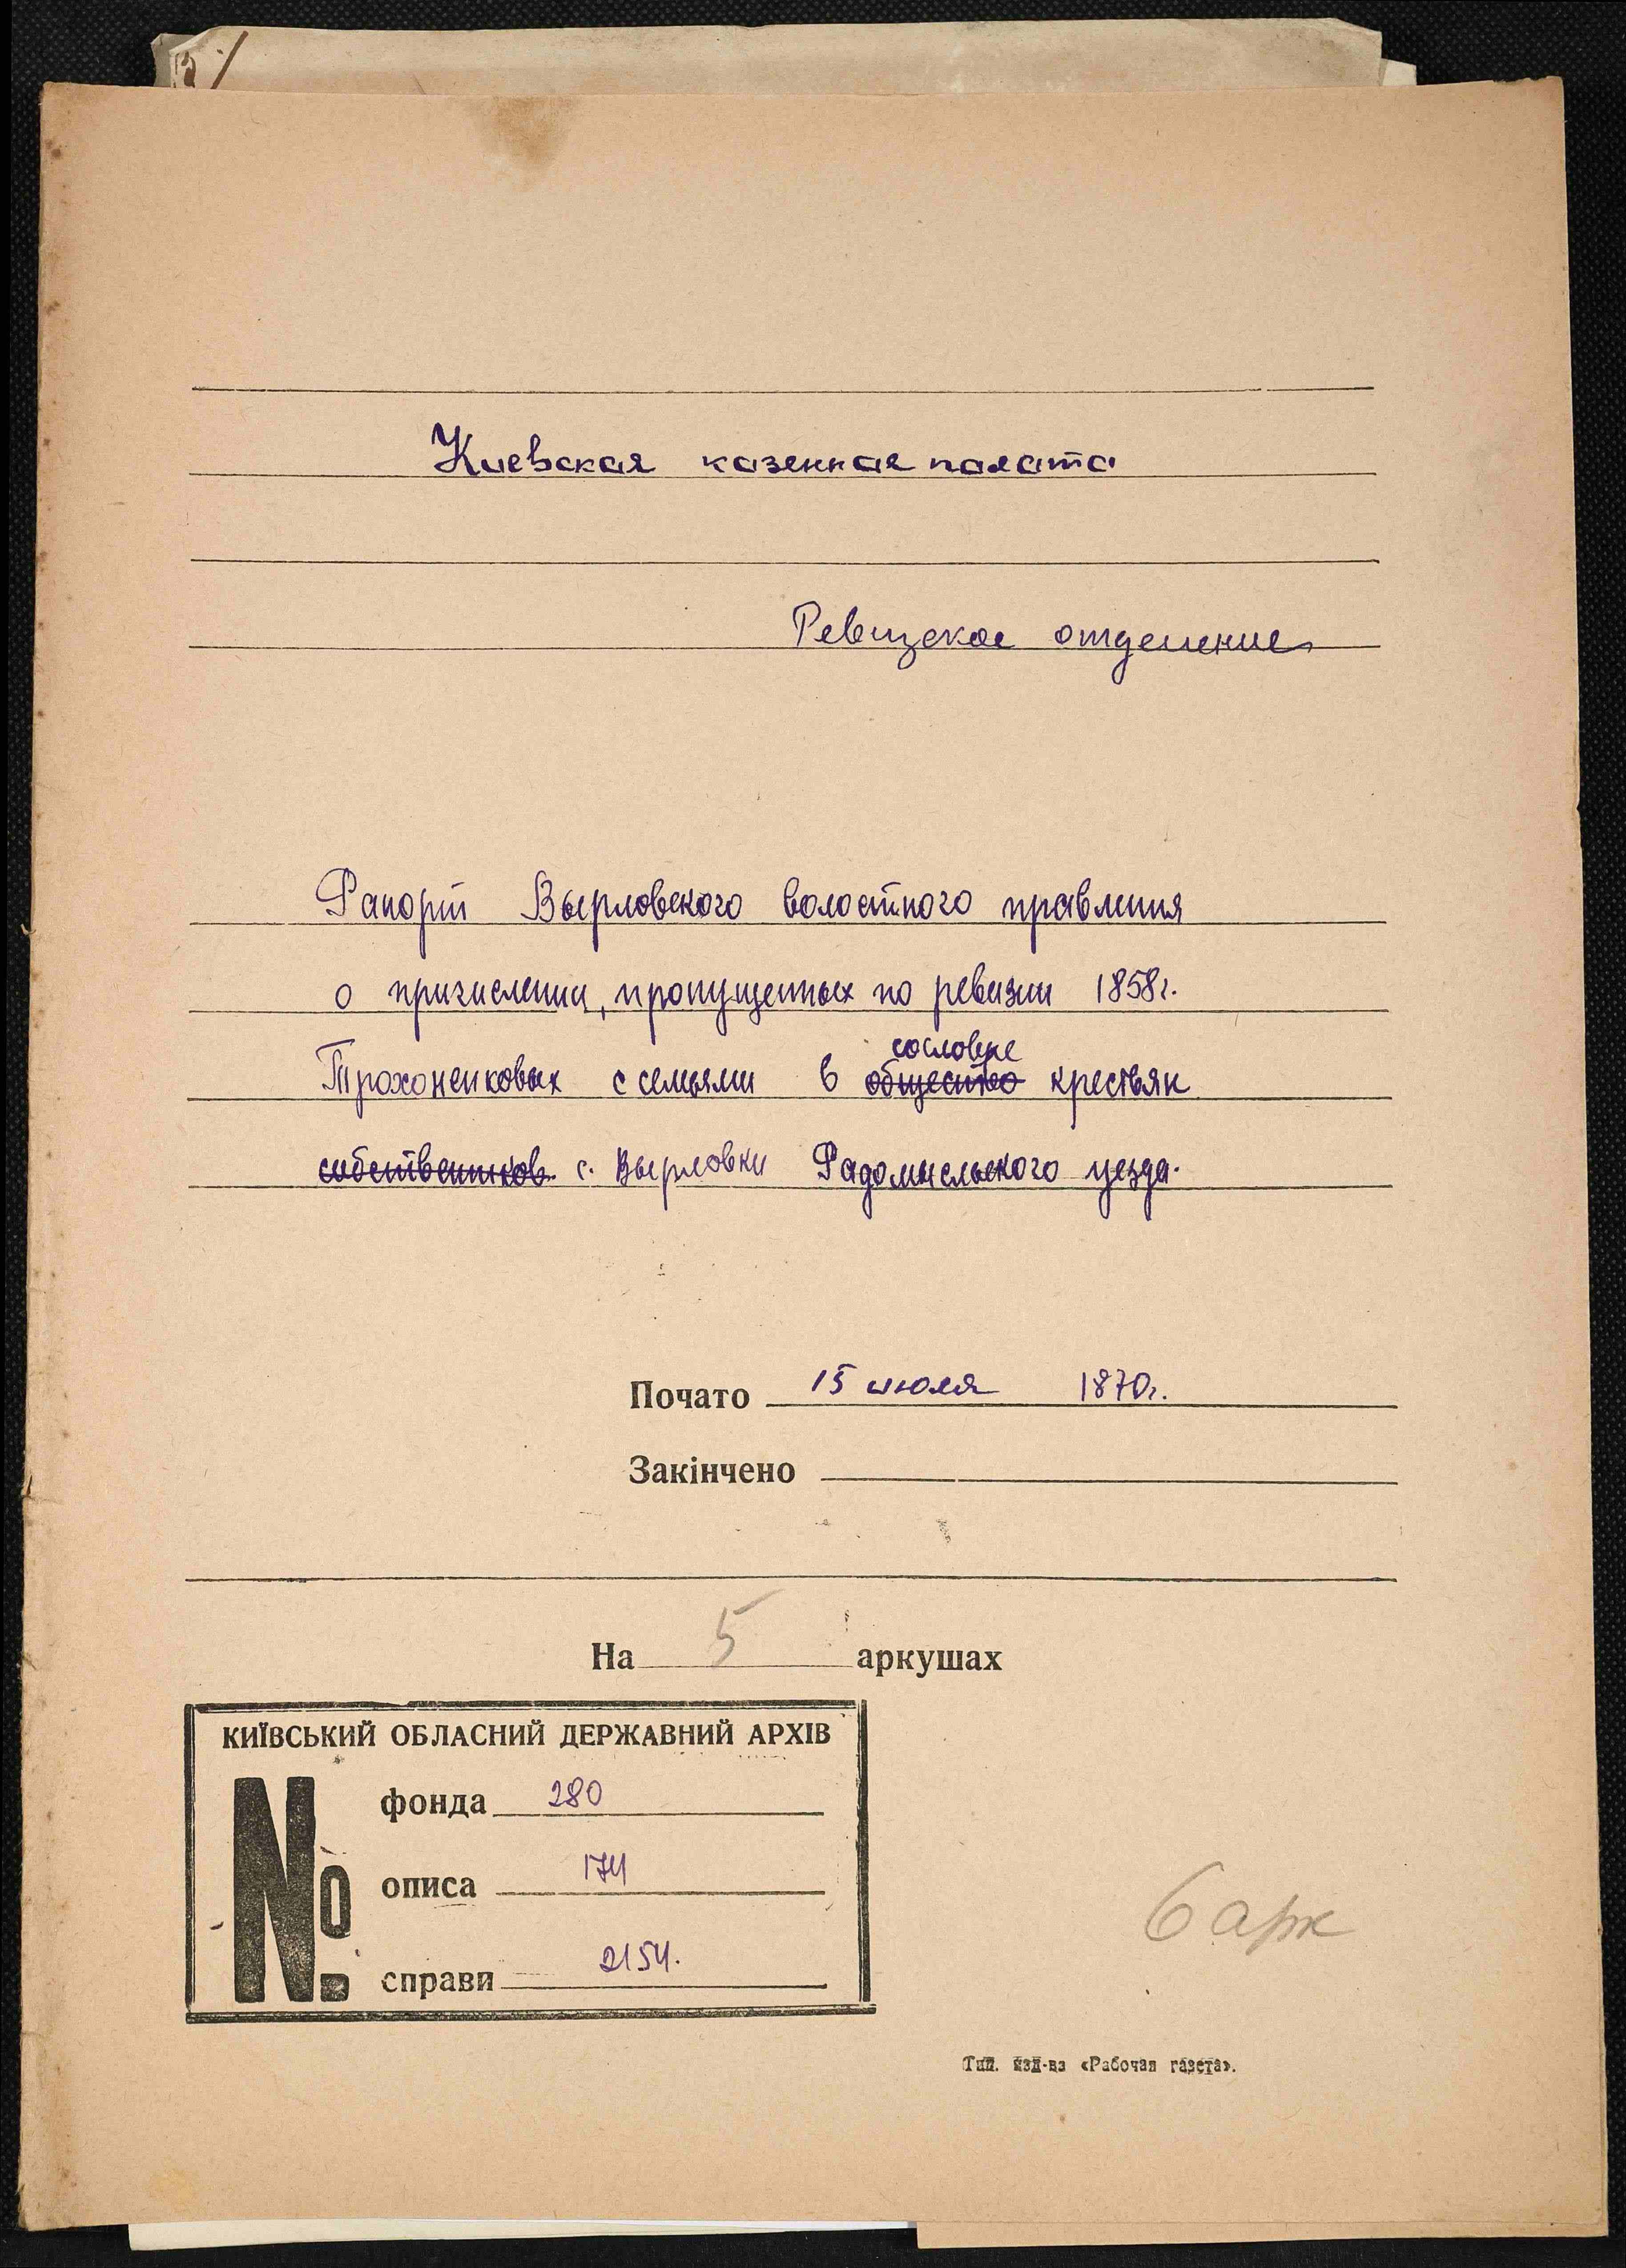 Киевская казенная палата
Ревизское отделение
Рапорт Вырловского волостного правления
о причислении, пропущенных по ревизии 1858г.
сословие
Трохоненковых с семьями в общество крестьян
собственников с. Вырловки Радомысльского уезда.
Почато 15 июля 1870г.
Закінчено
На 5 аркушах
КИЇВСЬКИЙ ОБЛАСНИЙ ДЕРЖАВНИЙ АРХІВ
№
фонда 280
описа 174
справи 2154.
6 арк
Тип. изд-ва «Рабочая газета».